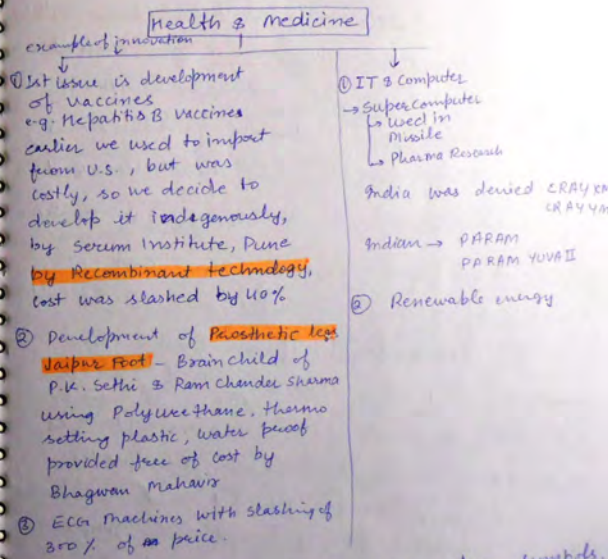 Health & Medicine
example of innovation
① Ist issue is development
of vaccines
e.g. Hepatitis B vaccines
earlier we used to import
from U.S., but was
costly, so we decide to
develop it indegenously,
by Serum Institute, Pune
by Recombinant technology,
cost was slashed by 40%
② Development of Prosthetic legs
Jaipur Foot - Brain Child of
P.K. Sethi & Ram Chander Sharma
using Polyureethane, thermo
setting plastic, water proof
provided free of cost by
Bhagwan Mahavir
③ ECG machines with slashing of
300% of price.
① IT & Computer
→ Supercomputer
↳ used in
Missile
↳ Pharma Research
India was denied CRAY XM
CRAY YM
Indian → PARAM
PARAM YUVA II
② Renewable energy
symbols.